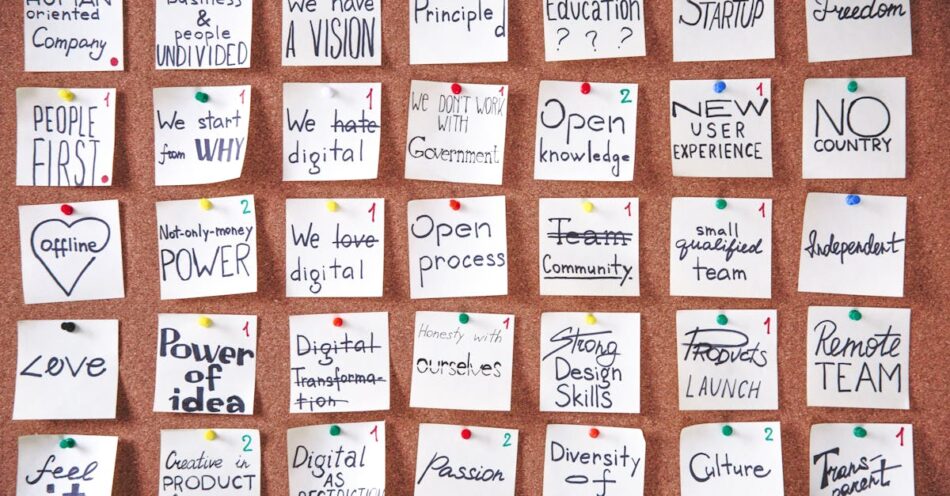 HUMAN
oriented
Company
Business
&
people
UNDIVIDED
We have
A VISION
Principled
Education
? ? ?
STARTUP
Freedom
1
PEOPLE
FIRST
1
We start
from WHY
1
We hate
digital
1
We DON'T WORK
WITH
Government
2
Open
knowledge
1
NEW
USER
EXPERIENCE
NO
COUNTRY
offline
2
Not-only-money
POWER
1
We love
digital
Open
process
1
Team
Community
1
small
qualified
team
Independent
Love
1
Power
of
idea
Digital
Transforma-
tion
1
Honesty with
ourselves
Strong
Design
Skills
1
Products
LAUNCH
Remote
TEAM
feel
it
2
Creative in
PRODUCT
1
Digital
AS
Passion
Diversity
of
2
Culture
1
Trans-
parent